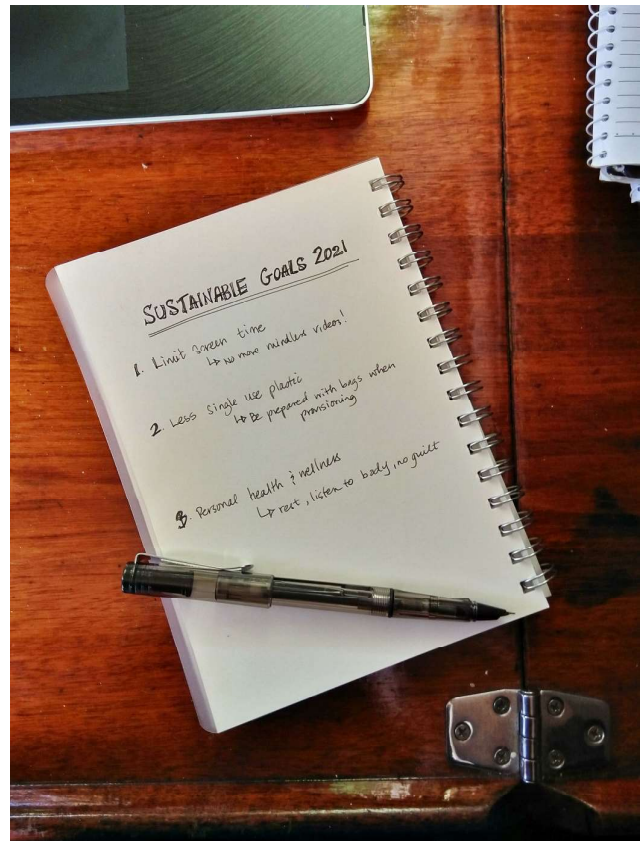 SUSTAINABLE GOALS 2021
1. Limit screen time
↳ No more mindless videos!
2. Less single use plastic
↳ Be prepared with bags when
provisioning
3. Personal health & wellness
↳ rest, listen to body, no guilt